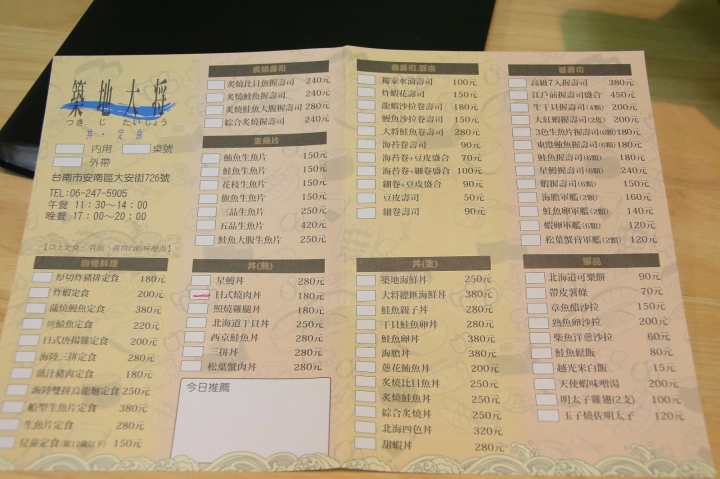 築地大将
つきじ たいしょう
丼・定食
内用 桌號
外帶
台南市安南區大安街726號
TEL:06-247-5905
午餐 11:30~14:00
晚餐 17:00~20:00
炙燒壽司
炙燒比目魚握壽司 240元
炙燒鮭魚握壽司 240元
炙燒鮭魚大腹握壽司 280元
綜合炙燒握壽司 240元
生魚片
鮪魚生魚片 150元
鮭魚生魚片 150元
花枝生魚片 150元
旗魚生魚片 150元
三品生魚片 250元
五品生魚片 420元
鮭魚大腹生魚片 250元
卷壽司.豆皮
獨家水滴壽司 100元
炸蝦花壽司 150元
龍蝦沙拉卷壽司 180元
鰻魚沙拉卷壽司 150元
大將鮭魚卷壽司 280元
海苔卷壽司 90元
海苔卷+豆皮盛合 70元
海苔卷+細卷盛合 100元
細卷+豆皮盛合 90元
豆皮壽司 50元
細卷壽司 90元
握壽司
高級7入握壽司 380元
江戶前握壽司盛合 450元
生干貝握壽司(4顆) 200元
大紅蝦握壽司(2隻) 200元
3色生魚片握壽司 180元
東港鮪魚握壽司(6顆) 180元
鮭魚握壽司(6顆) 180元
星鰻握壽司(6顆) 240元
蝦握壽司(6顆) 150元
海膽軍艦(2顆) 160元
鮭魚卵軍艦(2顆) 140元
蝦卵軍艦(6顆) 120元
松葉蟹膏軍艦(2顆) 120元
厚切炸豬排定食 180元
炸蝦定食 200元
蒲燒鰻魚定食 380元
烤鯖魚定食 220元
日式唐揚雞定食 200元
海陸三拼定食 280元
薑汁豬肉定食 180元
海陸雙拼烏龍麵定食 250元
船型生魚片定食 380元
生魚片定食 280元
兒童定食(限12歲以下) 150元
丼(熟)
星鰻丼 280元
日式燒肉丼 180元
照燒雞腿丼 180元
北海道干貝丼 250元
西京鮭魚丼 280元
三拼丼 280元
松葉蟹肉丼 280元
今日推薦
丼(生)
築地海鮮丼 250元
大将總匯海鮮丼 380元
鮭魚親子丼 280元
干貝鮭魚卵丼 280元
鮭魚卵丼 380元
海膽丼 380元
蔥花鮪魚丼 200元
炙燒比目魚丼 250元
炙燒鮭魚丼 250元
綜合炙燒丼 250元
北海四色丼 320元
甜蝦丼 280元
單品
北海道可樂餅 90元
帶皮薯條 70元
章魚醋沙拉 150元
熟魚卵沙拉 200元
柴魚洋蔥沙拉 60元
鮭魚鬆飯 80元
越光米白飯 15元
天使蝦味噌湯 200元
明太子雞翅(2支) 100元
玉子燒佐明太子 120元